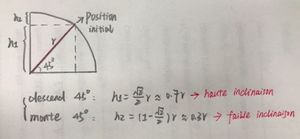 h₂
h₁
r
45°
position
initial
descend 45° : h₁ = √2/2 r ≈ 0.7r → haute inclinaison
monte 45° : h₂ = (1-√2/2)r ≈ 0.3r → faible inclinaison